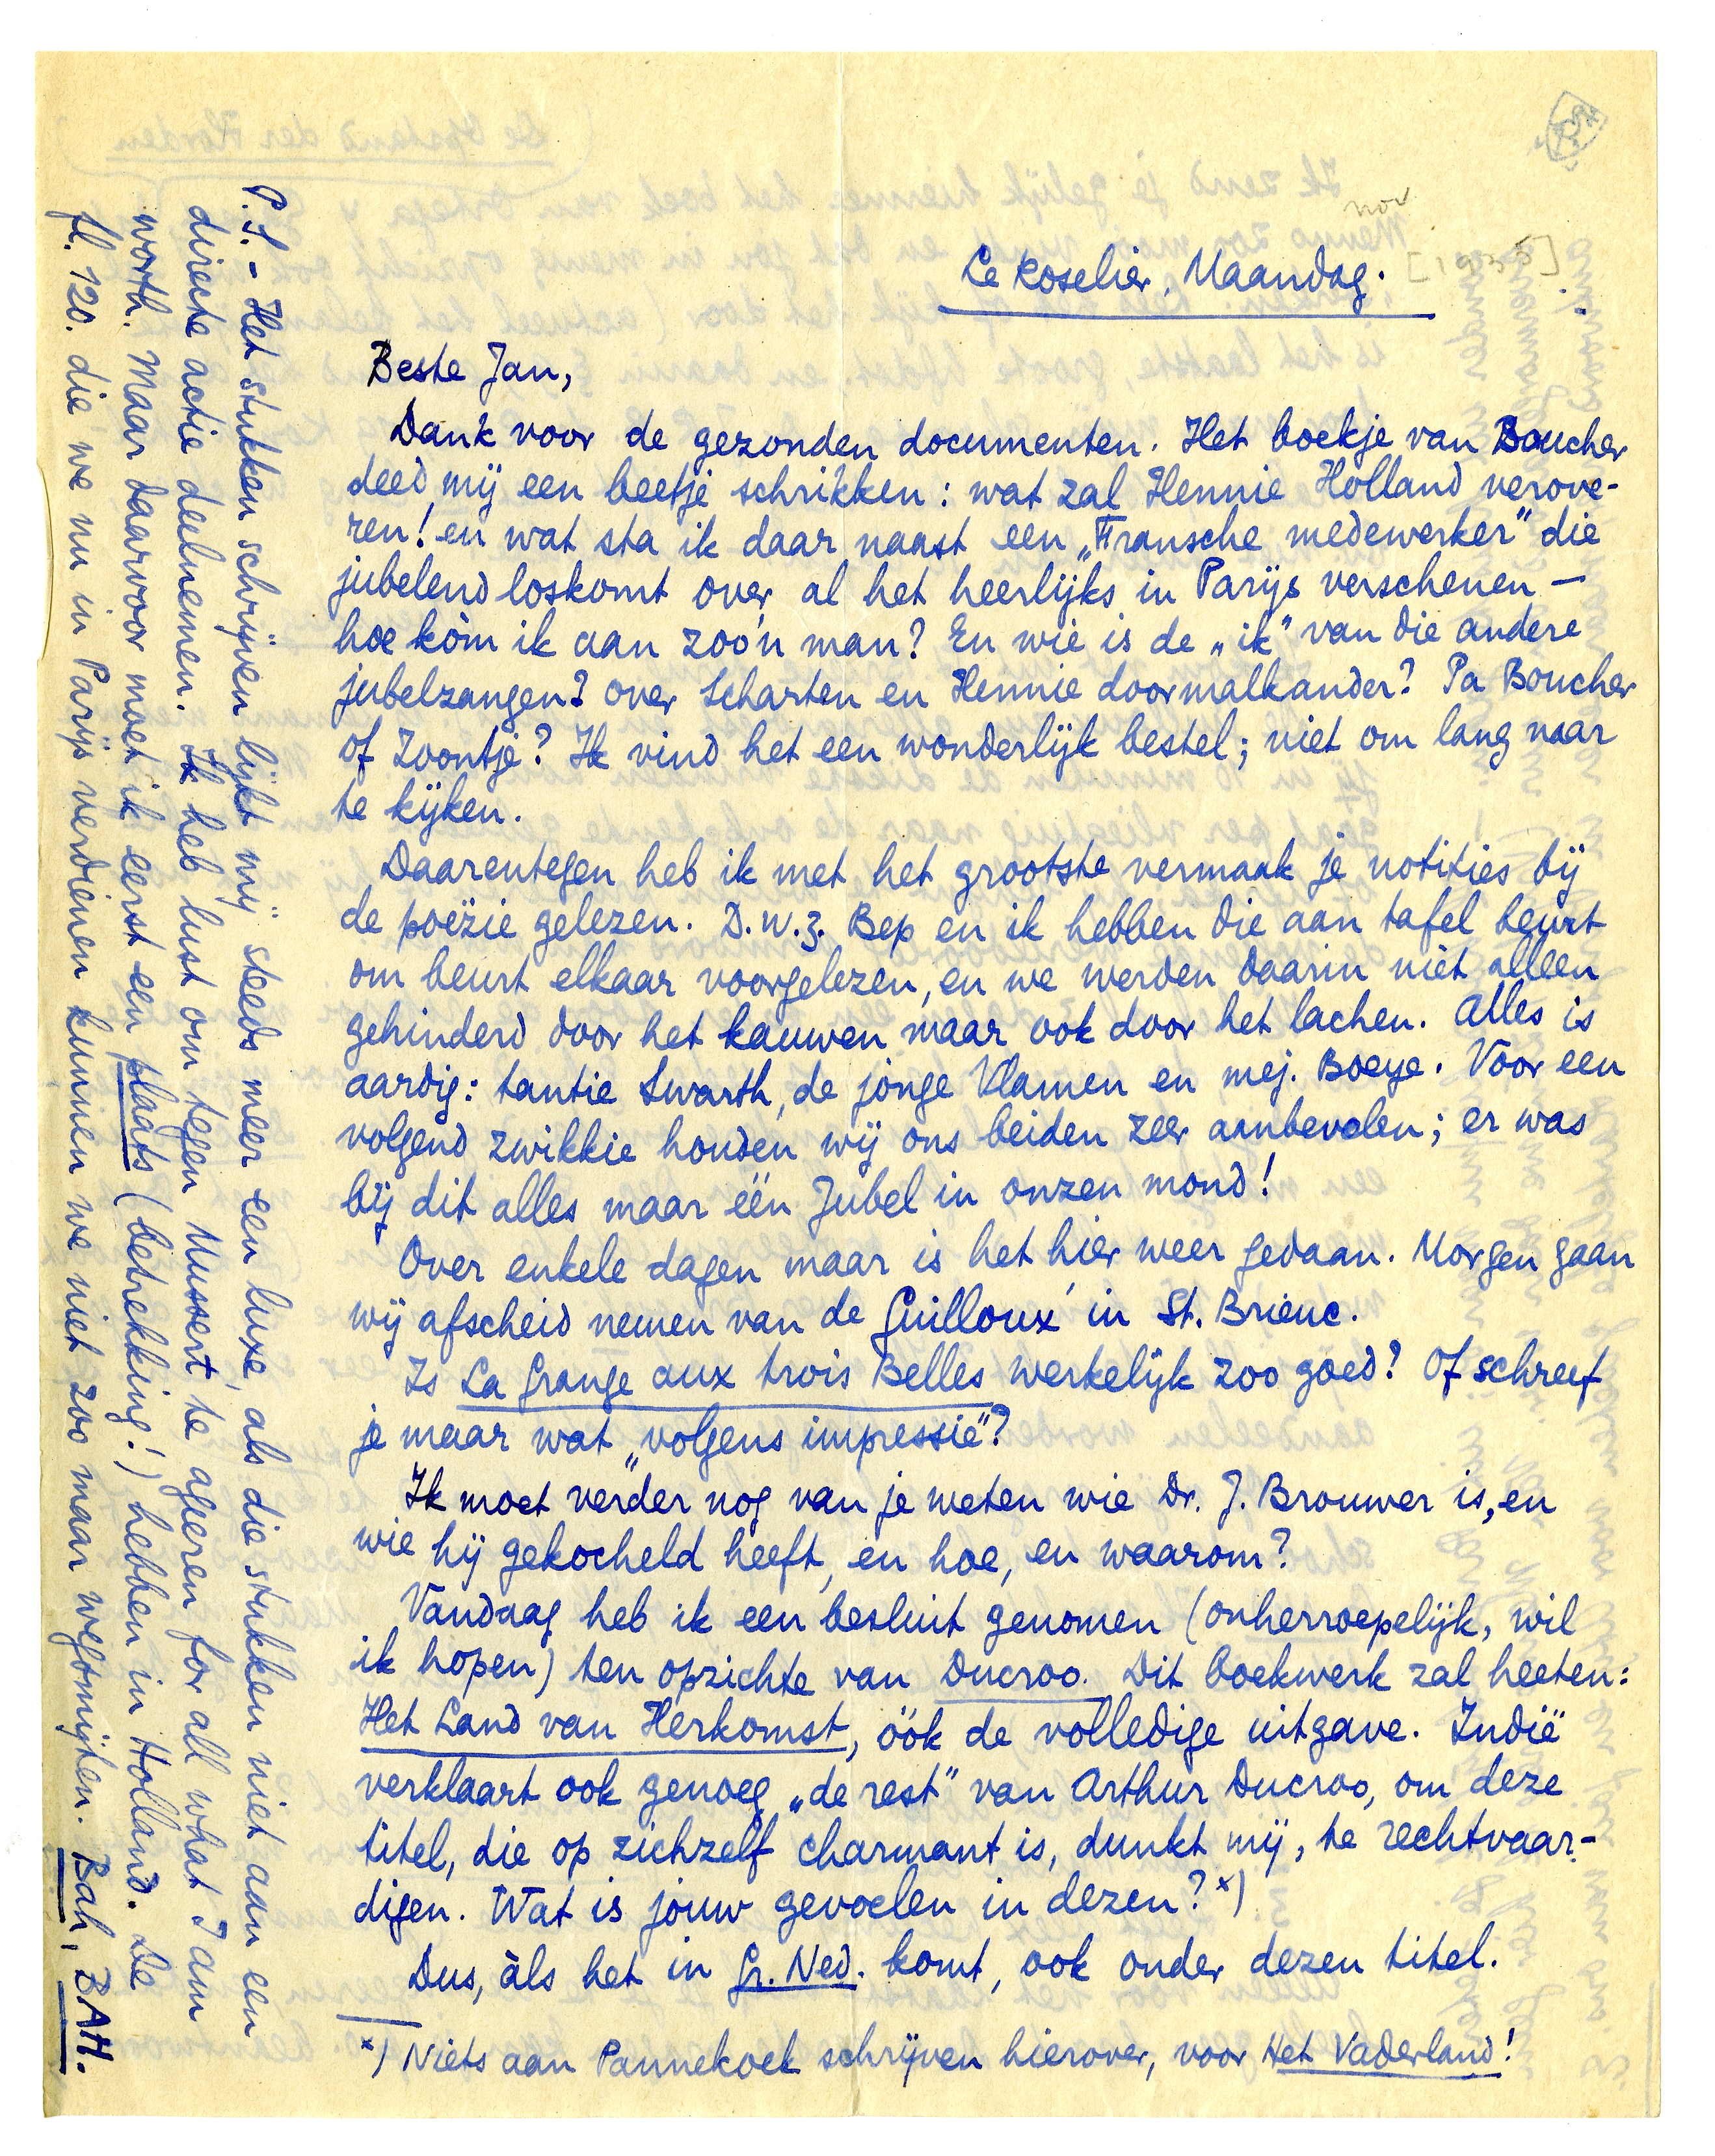 nov
[1935]
Le Roselier, Maandag.
Beste Jan,
Dank voor de gezonden documenten. Het boekje van Boucher
deed mij een beetje schrikken: wat zal Hennie Holland verove-
ren! en wat sta ik daar naast een „Fransche medewerker" die
jubelend loskomt over al het heerlijks in Parijs verschenen —
hoe kòm ik aan zoo'n man? En wie is de „ik" van die andere
jubelzangen? over Scharten en Hennie doormalkander? Pa Boucher
of Zoontje? Ik vind het een wonderlijk bestel; niet om lang naar
te kijken.
Daarentegen heb ik met het grootste vermaak je notities bij
de poëzie gelezen. D.w.z. Bep en ik hebben die aan tafel beurt
om beurt elkaar voorgelezen, en we werden daarin niet alleen
gehinderd door het kauwen maar ook door het lachen. Alles is
aardig: tantie Swarth, de jonge Vlamen en mej. Boeye. Voor een
volgend zwikkie houden wij ons beiden zeer aanbevolen; er was
bij dit alles maar één Jubel in onzen mond!
Over enkele dagen maar is het hier weer gedaan. Morgen gaan
wij afscheid nemen van de Guilloux' in St. Brieuc.
Is La Grange aux trois Belles werkelijk zoo goed? Of schreef
je maar wat „volgens impressie"?
Ik moet verder nog van je weten wie Dr. J. Brouwer is, en
wie hij gekocheld heeft, en hoe, en waarom?
Vandaag heb ik een besluit genomen (onherroepelijk, wil
ik hopen) ten opzichte van Ducroo. Dit boekwerk zal heeten:
Het Land van Herkomst, óók de volledige uitgave. Indië
verklaart ook genoeg „de rest" van Arthur Ducroo, om deze
titel, die op zichzelf charmant is, dunkt mij, te rechtvaar-
digen. Wat is jouw gevoelen in dezen? *)
Dus, àls het in Gr. Ned. komt, ook onder dezen titel.
*) Niets aan Pannekoek schrijven hierover, voor Het Vaderland!
P.S. - Het stukken schrijven lijkt mij steeds meer een luxe, als die stukken niet aan een
directe actie deelnemen. Ik heb lust om tegen Mussert te ageeren for all what I am
worth. Maar daarvoor moet ik eerst een plaats (betrekking!) hebben in Holland. De
fl. 120. die we nu in Parijs verdienen kunnen we niet zoo maar wegsmijten. Bah, BAH.